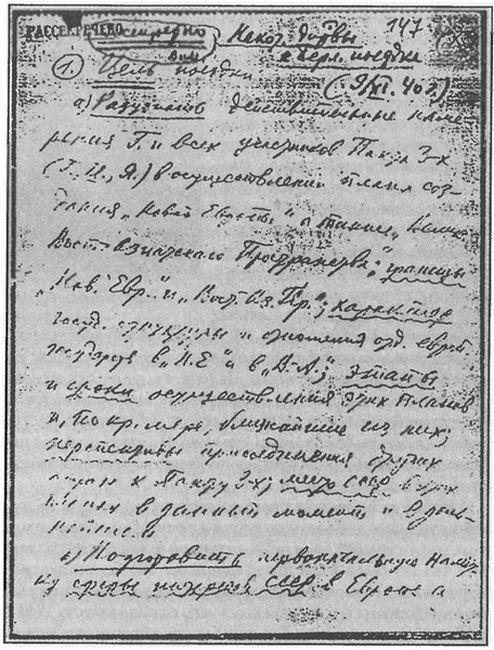 РАССЕКРЕЧЕНО 147
Некот. дирвы
к Берл. поездке
(9/XI. 40 г.)
1. Цель поездки
а) Разузнать действительные наме-
рения Г. и всех участников Пакта 3-х
(Г., И., Я.) в осуществлении плана соз-
дания „Новой Европы", а также „Велик.
Вост.-Азиатского Пространства"; границы
„Нов. Евр." и „Вост.-Аз. Пр."; характер
госуд. структуры и отношения отд. европ.
государств в „Н.Е." и в „В.-А."; этапы
и сроки осуществления этих планов
и, по кр. мере, ближайшие из них;
перспективы присоединения других
стран к Пакту 3-х; место СССР в этих
планах в данный момент и в даль-
нейшем.
б) Подготовить первоначальную намет-
ку сферы интересов СССР в Европе, а